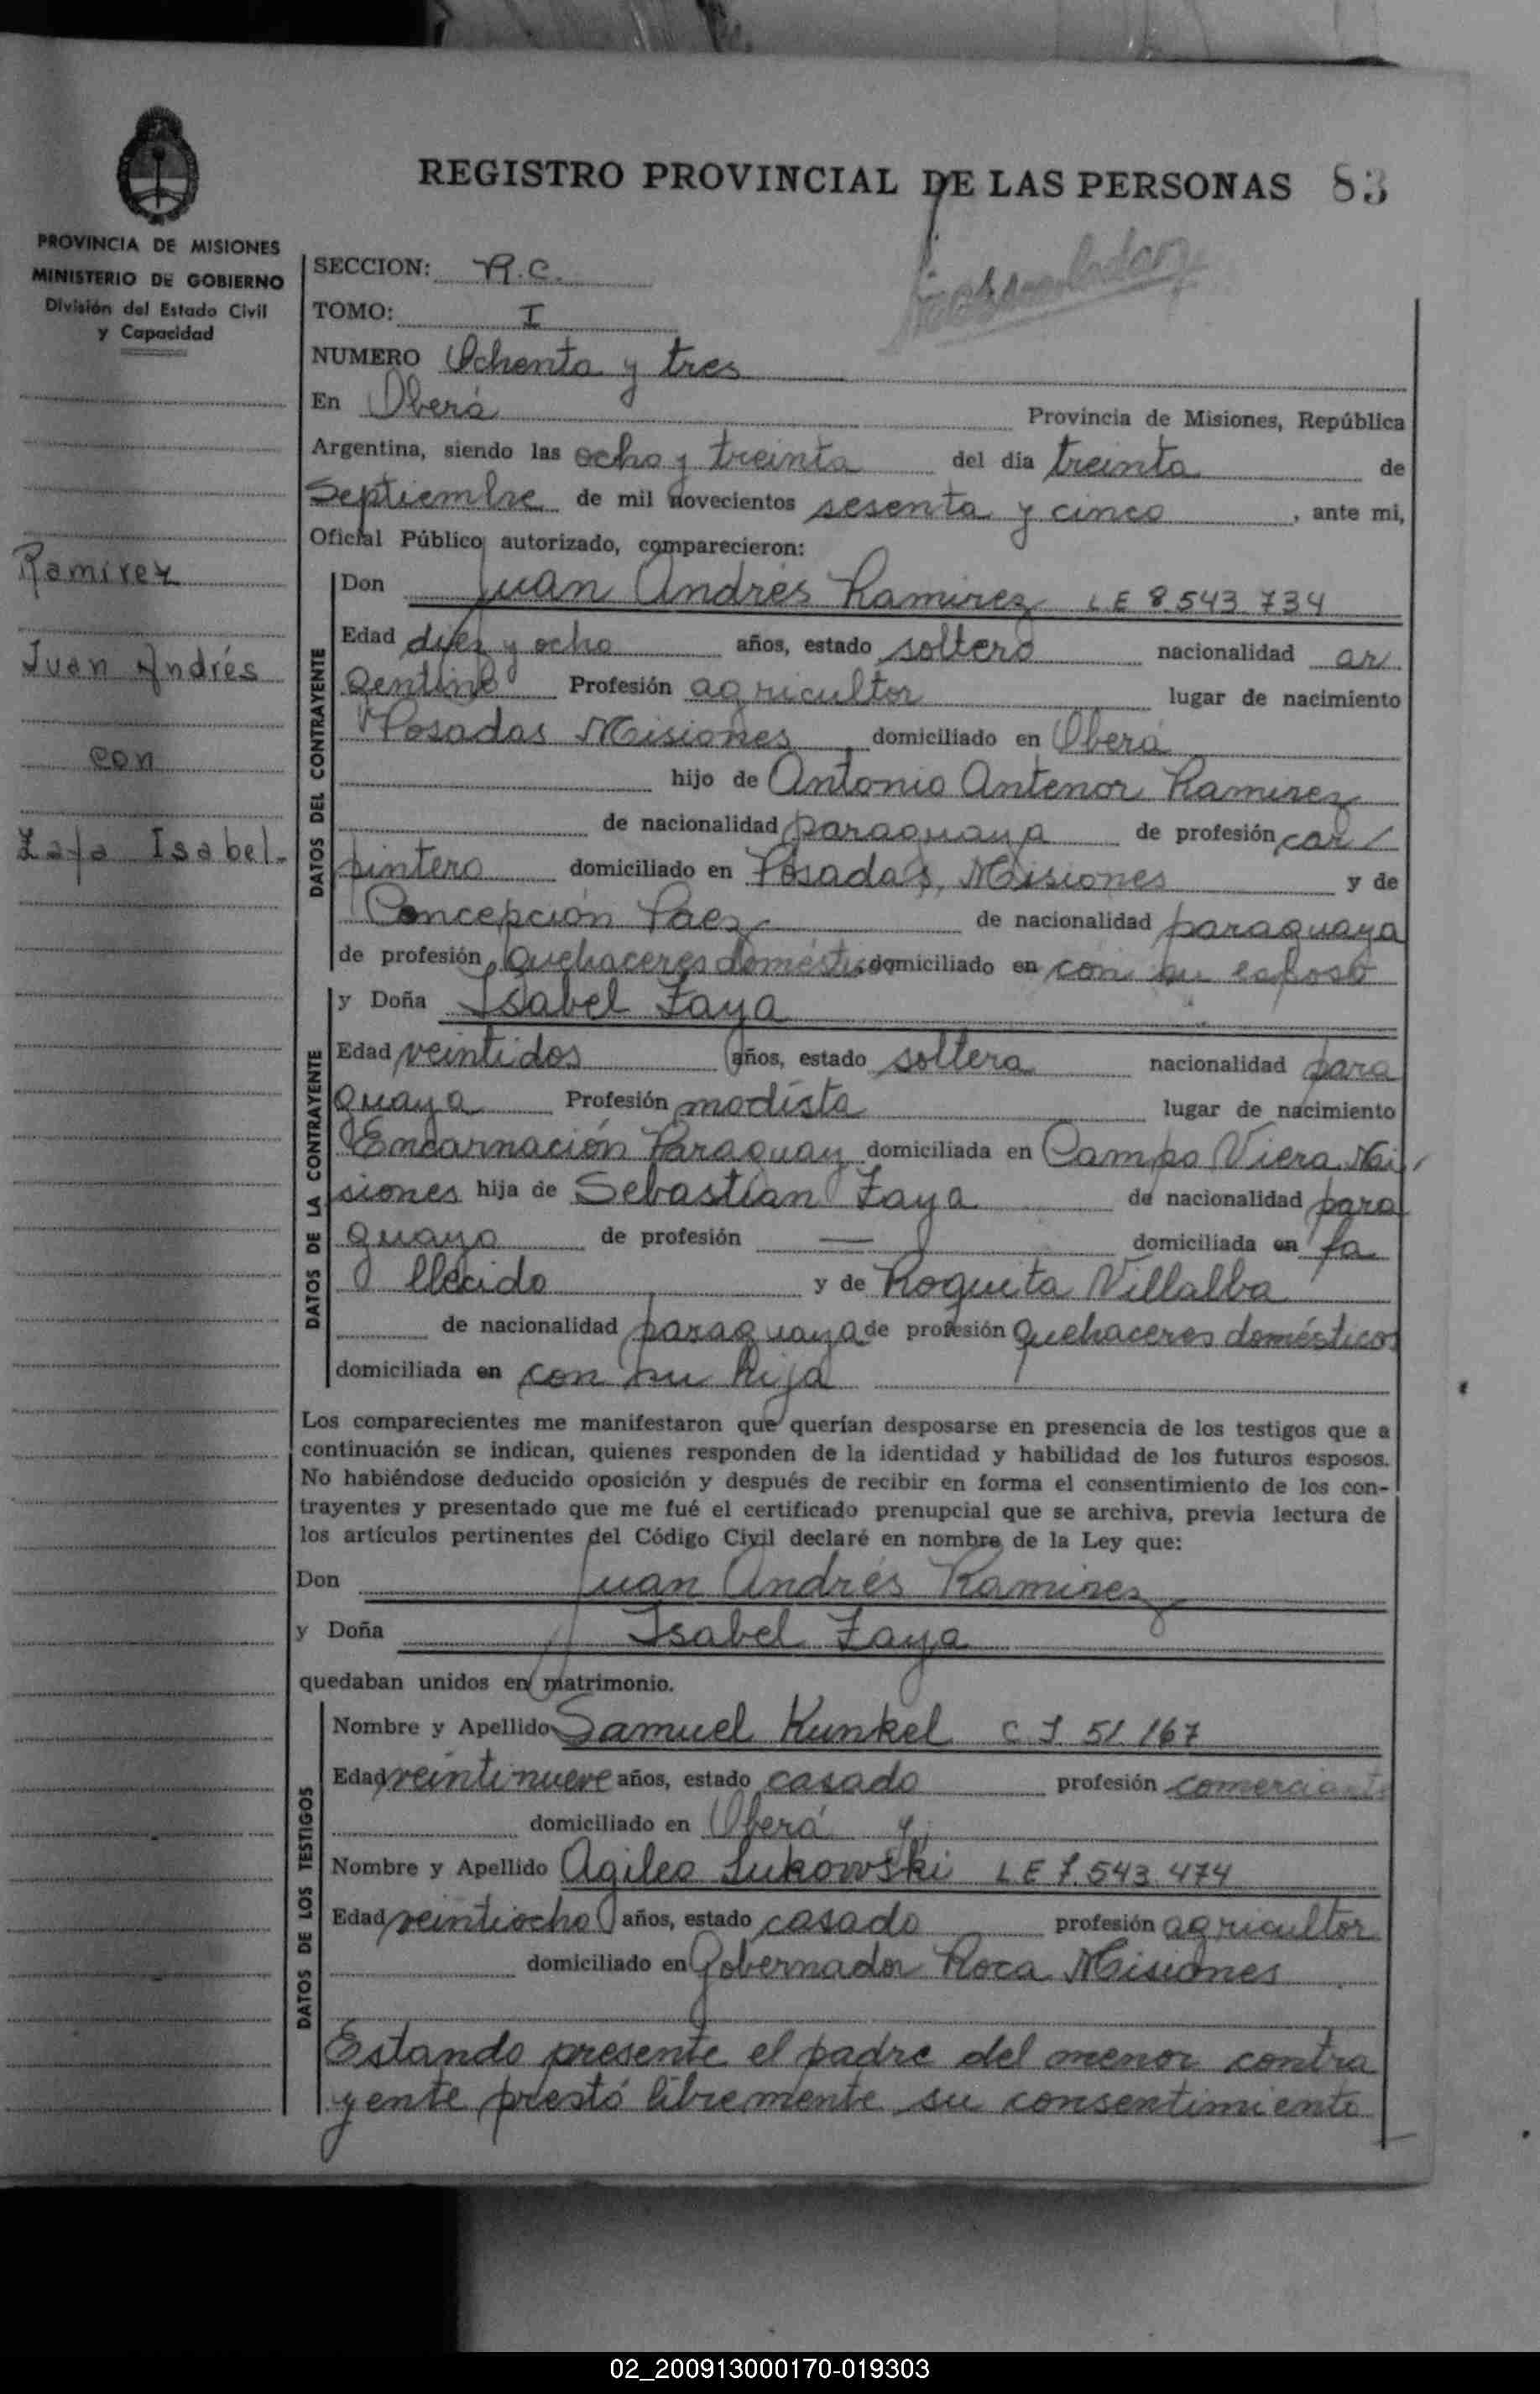 REGISTRO PROVINCIAL DE LAS PERSONAS 83
PROVINCIA DE MISIONES
MINISTERIO DE GOBIERNO
División del Estado Civil
y Capacidad
Ramirez
Juan Andrés
con
Zaya Isabel-
SECCION: R.C.
TOMO: I
NUMERO Ochenta y tres
En Oberá Provincia de Misiones, República
Argentina, siendo las ocho y treinta del dia treinta de
Septiembre de mil novecientos sesenta y cinco, ante mi,
Oficial Público autorizado, comparecieron:
DATOS DEL CONTRAYENTE
Don Juan Andrés Ramirez LE 8.543.734
Edad diez y ocho años, estado soltero nacionalidad ar
gentino Profesión agricultor lugar de nacimiento
Posadas Misiones domiciliado en Oberá
hijo de Antonio Antenor Ramirez
de nacionalidad paraguaya de profesión car/
pintero domiciliado en Posadas, Misiones y de
Concepción Paez de nacionalidad paraguaya
de profesión quehaceres domésticos domiciliado en con su esposo
DATOS DE LA CONTRAYENTE
y Doña Isabel Zaya
Edad veintidos años, estado soltera nacionalidad para
guaya Profesión modista lugar de nacimiento
Encarnación Paraguay domiciliada en Campo Viera Mi
siones hija de Sebastían Zaya de nacionalidad para
guayo de profesión — domiciliada en fa
llecido y de Roqueta Villalba
de nacionalidad paraguaya de profesión quehaceres domésticos
domiciliada en con su hija
Los comparecientes me manifestaron que querían desposarse en presencia de los testigos que a
continuación se indican, quienes responden de la identidad y habilidad de los futuros esposos.
No habiéndose deducido oposición y después de recibir en forma el consentimiento de los con-
trayentes y presentado que me fué el certificado prenupcial que se archiva, previa lectura de
los artículos pertinentes del Código Civil declaré en nombre de la Ley que:
Don Juan Andrés Ramirez
y Doña Isabel Zaya
quedaban unidos en matrimonio.
DATOS DE LOS TESTIGOS
Nombre y Apellido Samuel Kunkel C I 51.167
Edad veintinueve años, estado casado profesión comerciante
domiciliado en Oberá y
Nombre y Apellido Agileo Lukowski LE 7.543.474
Edad veintiocho años, estado casado profesión agricultor
domiciliado en Gobernador Roca Misiones
Estando presente el padre del menor contra
yente prestó libremente su consentimiento
02_200913000170-019303